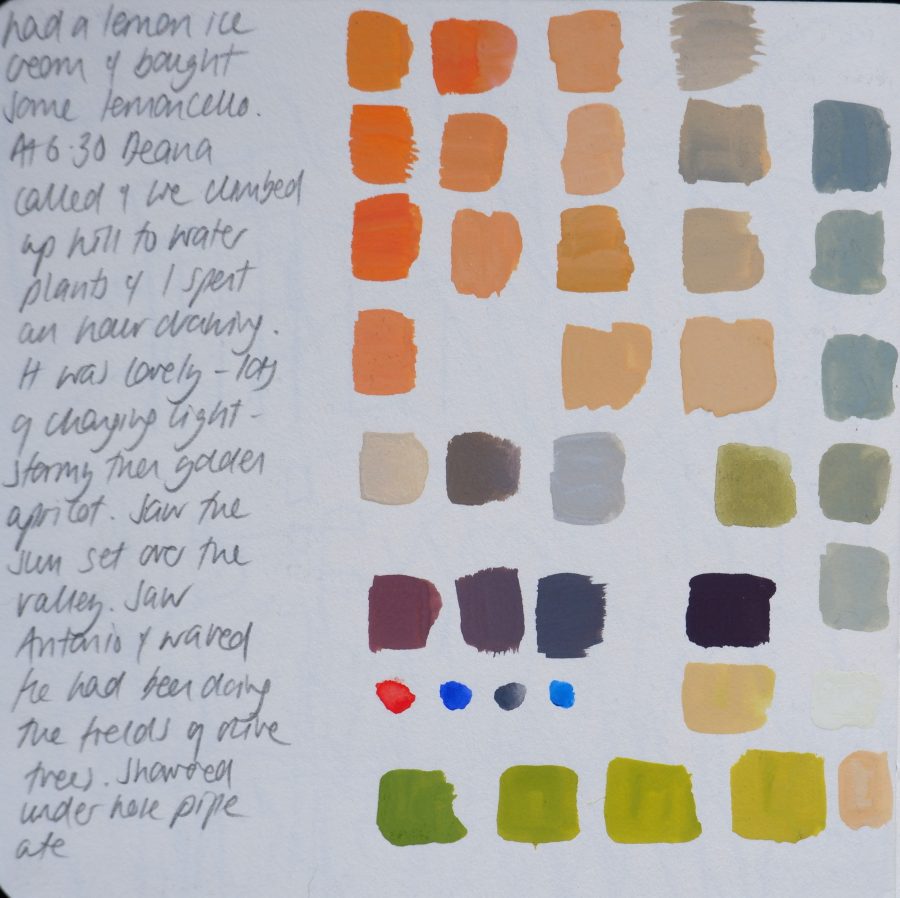 had a lemon ice
cream & bought
some lemoncello.
At 6.30 Deana
called & we climbed
up hill to water
plants & I spent
an hour drawing.
It was lovely - lots
of changing light -
stormy then golden
apricot. Saw the
sun set over the
valley. Saw
Antonio & waved
he had been doing
the fields of olive
trees. Showered
under hose pipe
ate